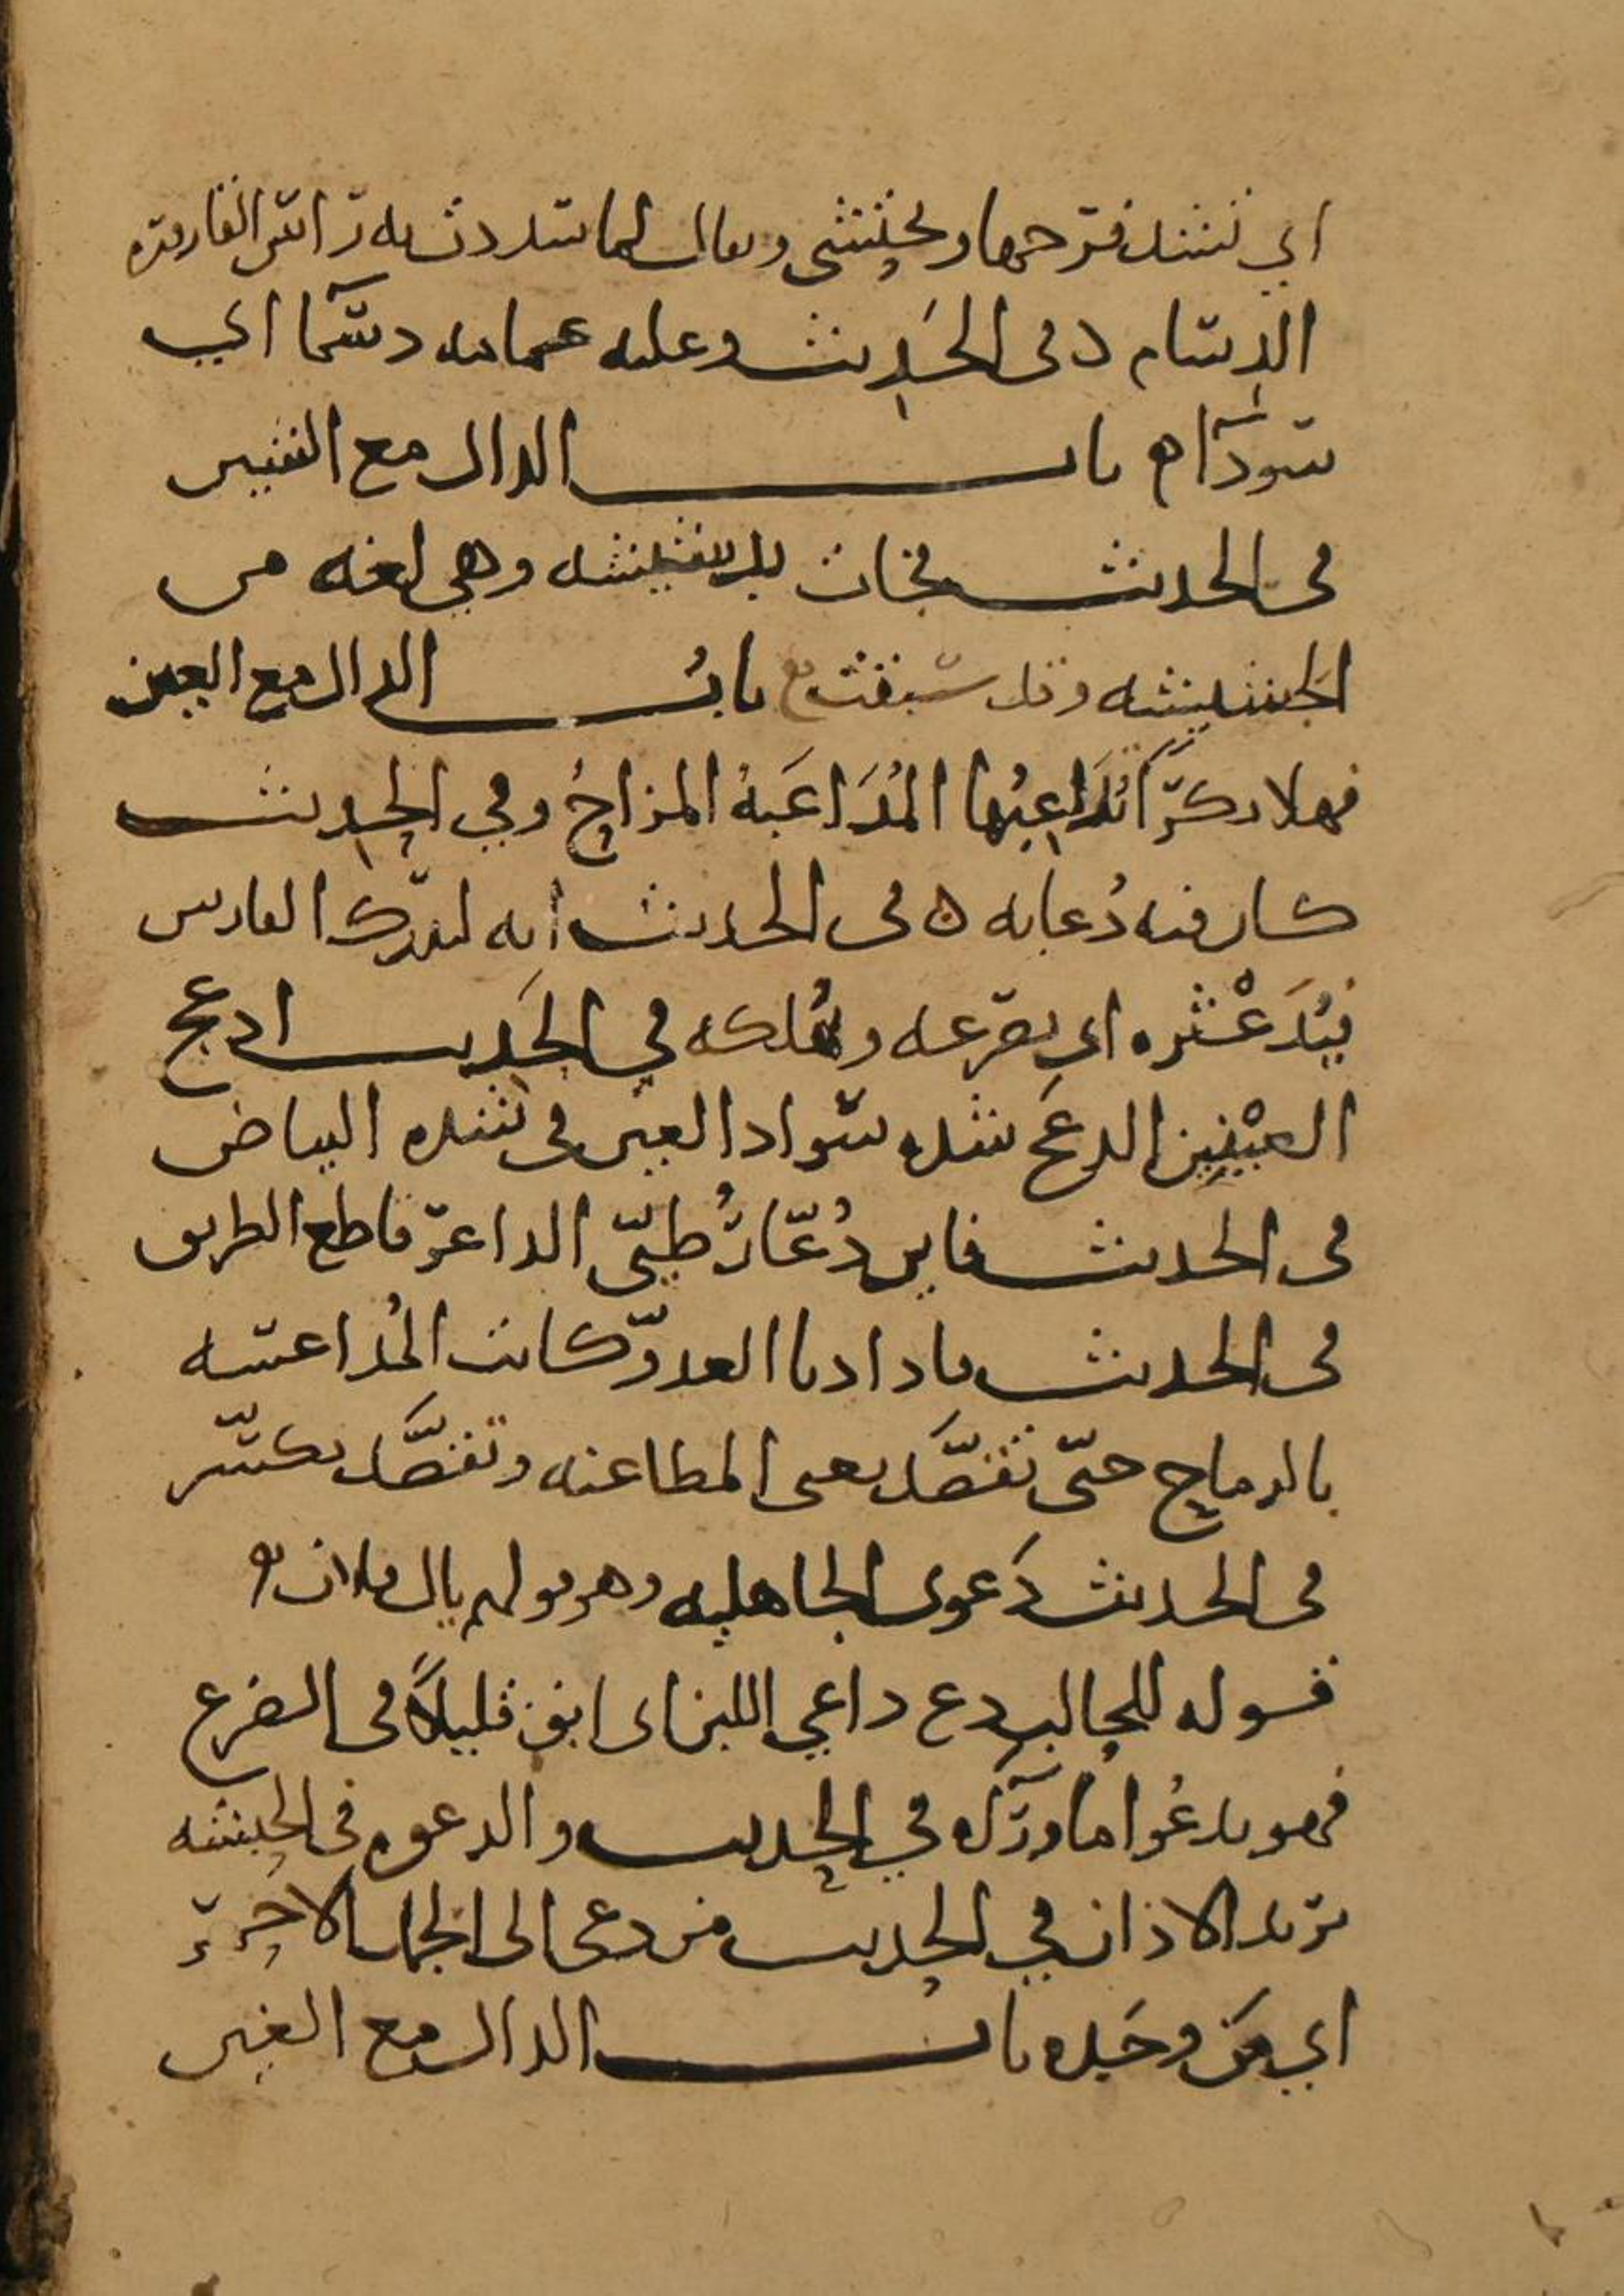 اي تسد فرجها وتحتشي ويقال لما سددت به راس القارورة
الدِسَام وفى الحَدِيث وعليه عمامه دسما اي
سودآ ه باب الدال مع الشين
فى الحديث فجات بدشيشه وهي لغه من
الجشيشه وقد سبقت باب الدال مع العين
فهلا بكرًا تُدَاعِبُها المُدَاعَبَهُ المزاحُ وفي الحِديث
كان فيه دُعابه ه فى الحديث انه ليدرك الفارس
فيُدَعْثره اي يصرعه ويُهلكه في الحَدِيث ادعج
العيْنين الدعَج شده سواد العين فى شده البياض
فى الحديث فاين دُعّارُ طيّئ الداعر قاطع الطريق
فى الحديث فاذا دنا العدوّ كانت المُداعسه
بالرماح حتّى تقصَّد يعنى المطاعنه وتقصَّد تكسّر
فى الحديث دَعوى الجاهليه وهو قولهم يال فلان
قوله للحالب دع داعي اللبن اى ابق قليلاً فى الضرع
فهو يدعُوا ما ورآه في الحديث والدعوه فى الحبشه
تريد الاذان في الحديث من دعى الى الجمل الاحمر
اي مَن وجَده باب الدال مع الغين